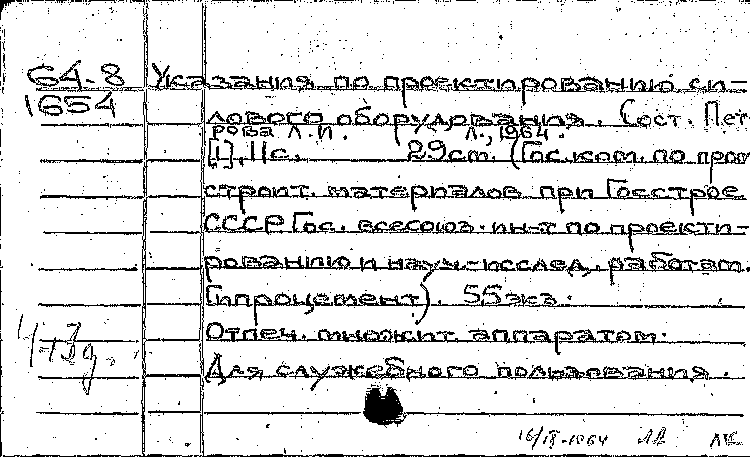 64-8 Указания по проектированию си-
1654 лового оборудования. Сост. Пет
рова Л.И. Л., 1964.
[1], 11с. 29 см. (Гос. ком. по пром
строит. материалов при Госстрое
СССР. Гос. всесоюз. ин-т по проекти-
рованию и науч.-исслед. работам.
Гипроцемент). 55 экз.
Отпеч. множит. аппаратом.
Для служебного пользования.